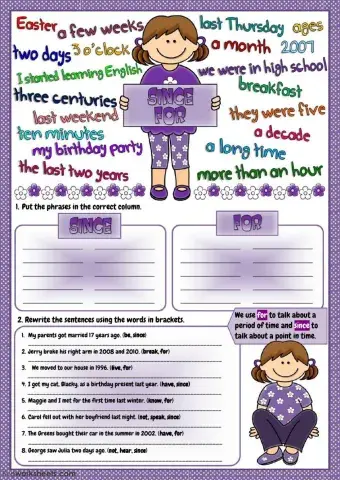 Easter a few weeks last Thursday ages
two days 3 o'clock a month 2007
I started learning English we were in high school
three centuries breakfast
SINCE
FOR
last weekend they were five
ten minutes a decade
my birthday party a long time
the last two years more than an hour
1. Put the phrases in the correct column.
SINCE FOR
We use for to talk about a
period of time and since to
talk about a point in time.
2. Rewrite the sentences using the words in brackets.
1. My parents got married 17 years ago. (be, since)
2. Jerry broke his right arm in 2008 and 2010. (break, for)
3. We moved to our house in 1996. (live, for)
4. I got my cat, Blacky, as a birthday present last year. (have, since)
5. Maggie and I met for the first time last winter. (know, for)
6. Carol fell out with her boyfriend last night. (not, speak, since)
7. The Greens bought their car in the summer in 2002. (have, for)
8. George saw Julia two days ago. (not, hear, since)